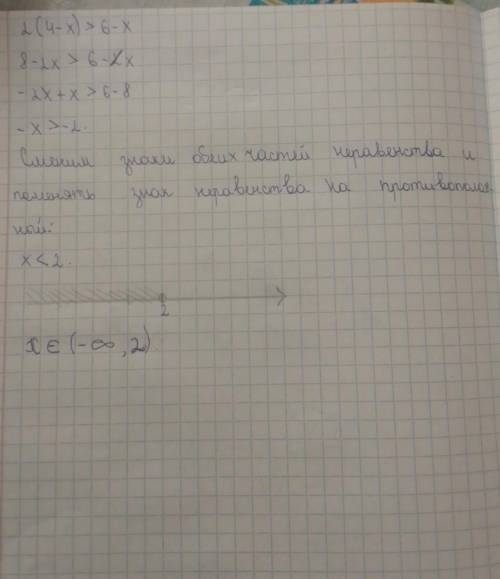 2(4-x)>6-x
8-2x>6-x
-2x+x>6-8
-x>-2.
Сменим знаки обеих частей неравенства и
поменять знак неравенства на противополож
ный:
x<2.
2
x∈(-∞,2)